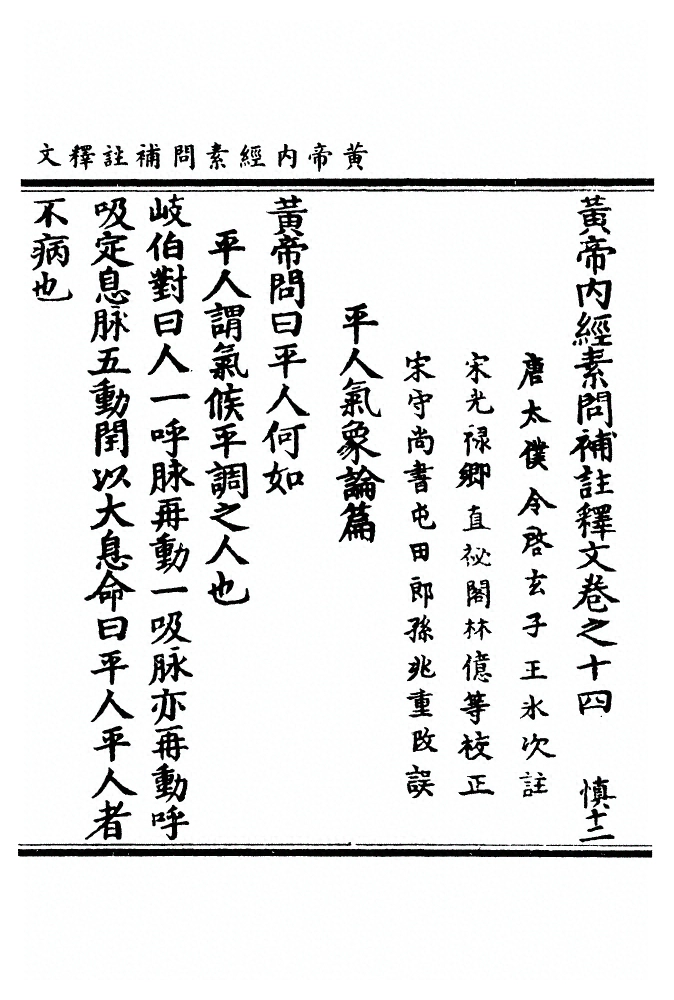 黃帝內經素問補註釋文
黃帝內經素問補註釋文卷之十四 慎十二
唐太僕令啓玄子王氷次註
宋光祿卿直祕閣林億等校正
宋守尚書屯田郎孫兆重改誤
平人氣象論篇
黃帝問曰平人何如
平人謂氣候平調之人也
岐伯對曰人一呼脉再動一吸脉亦再動呼
吸定息脉五動閏以大息命曰平人平人者
不病也